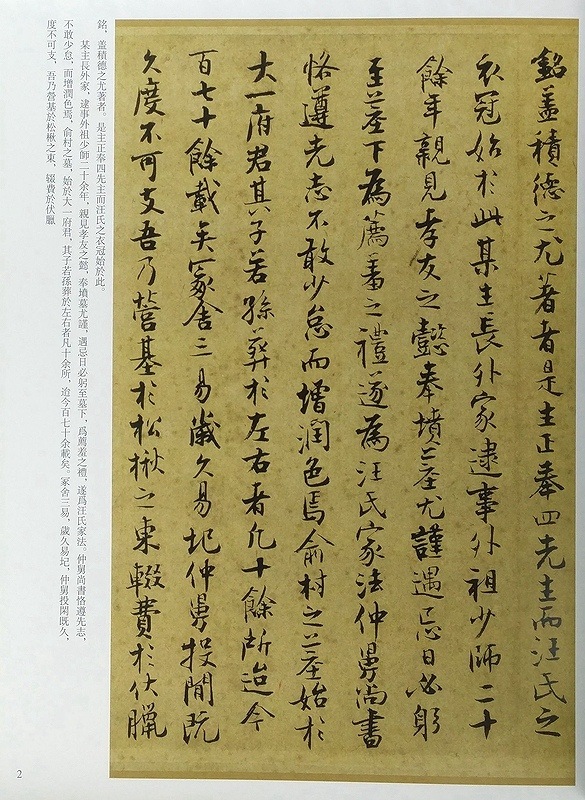 銘蓋積德之尤著者是主正奉四先主而汪氏之
衣冠始於此某主長外家逮事外祖少師二十
餘年親見孝友之懿奉墳墓尤謹遇忌日必躬
至墓下為薦羞之禮遂為汪氏家法仲舅尚書
恪遵先志不敢少怠而增潤色焉俞村之墓始於
大一府君其子若孫葬於左右者凡十餘所迨今
百七十餘載矣冢舍三易歲久易圮仲舅投閒既
久度不可支吾乃營基於松楸之東輟費於伏臘
銘，蓋積德之尤著者。是主正奉四先主而汪氏之衣冠始於此。
某主長外家，逮事外祖少師二十余年，親見孝友之懿，奉墳墓尤謹，遇忌日必躬至墓下，爲薦羞之禮，遂爲汪氏家法。仲舅尚書恪遵先志，
不敢少怠，而增潤色焉，俞村之墓，始於大一府君，其子若孫葬於左右者凡十余所，迨今百七十余載矣。冢舍三易，歲久易圮，仲舅投閑既久，
度不可支，吾乃營基於松楸之東，輟費於伏臘
2